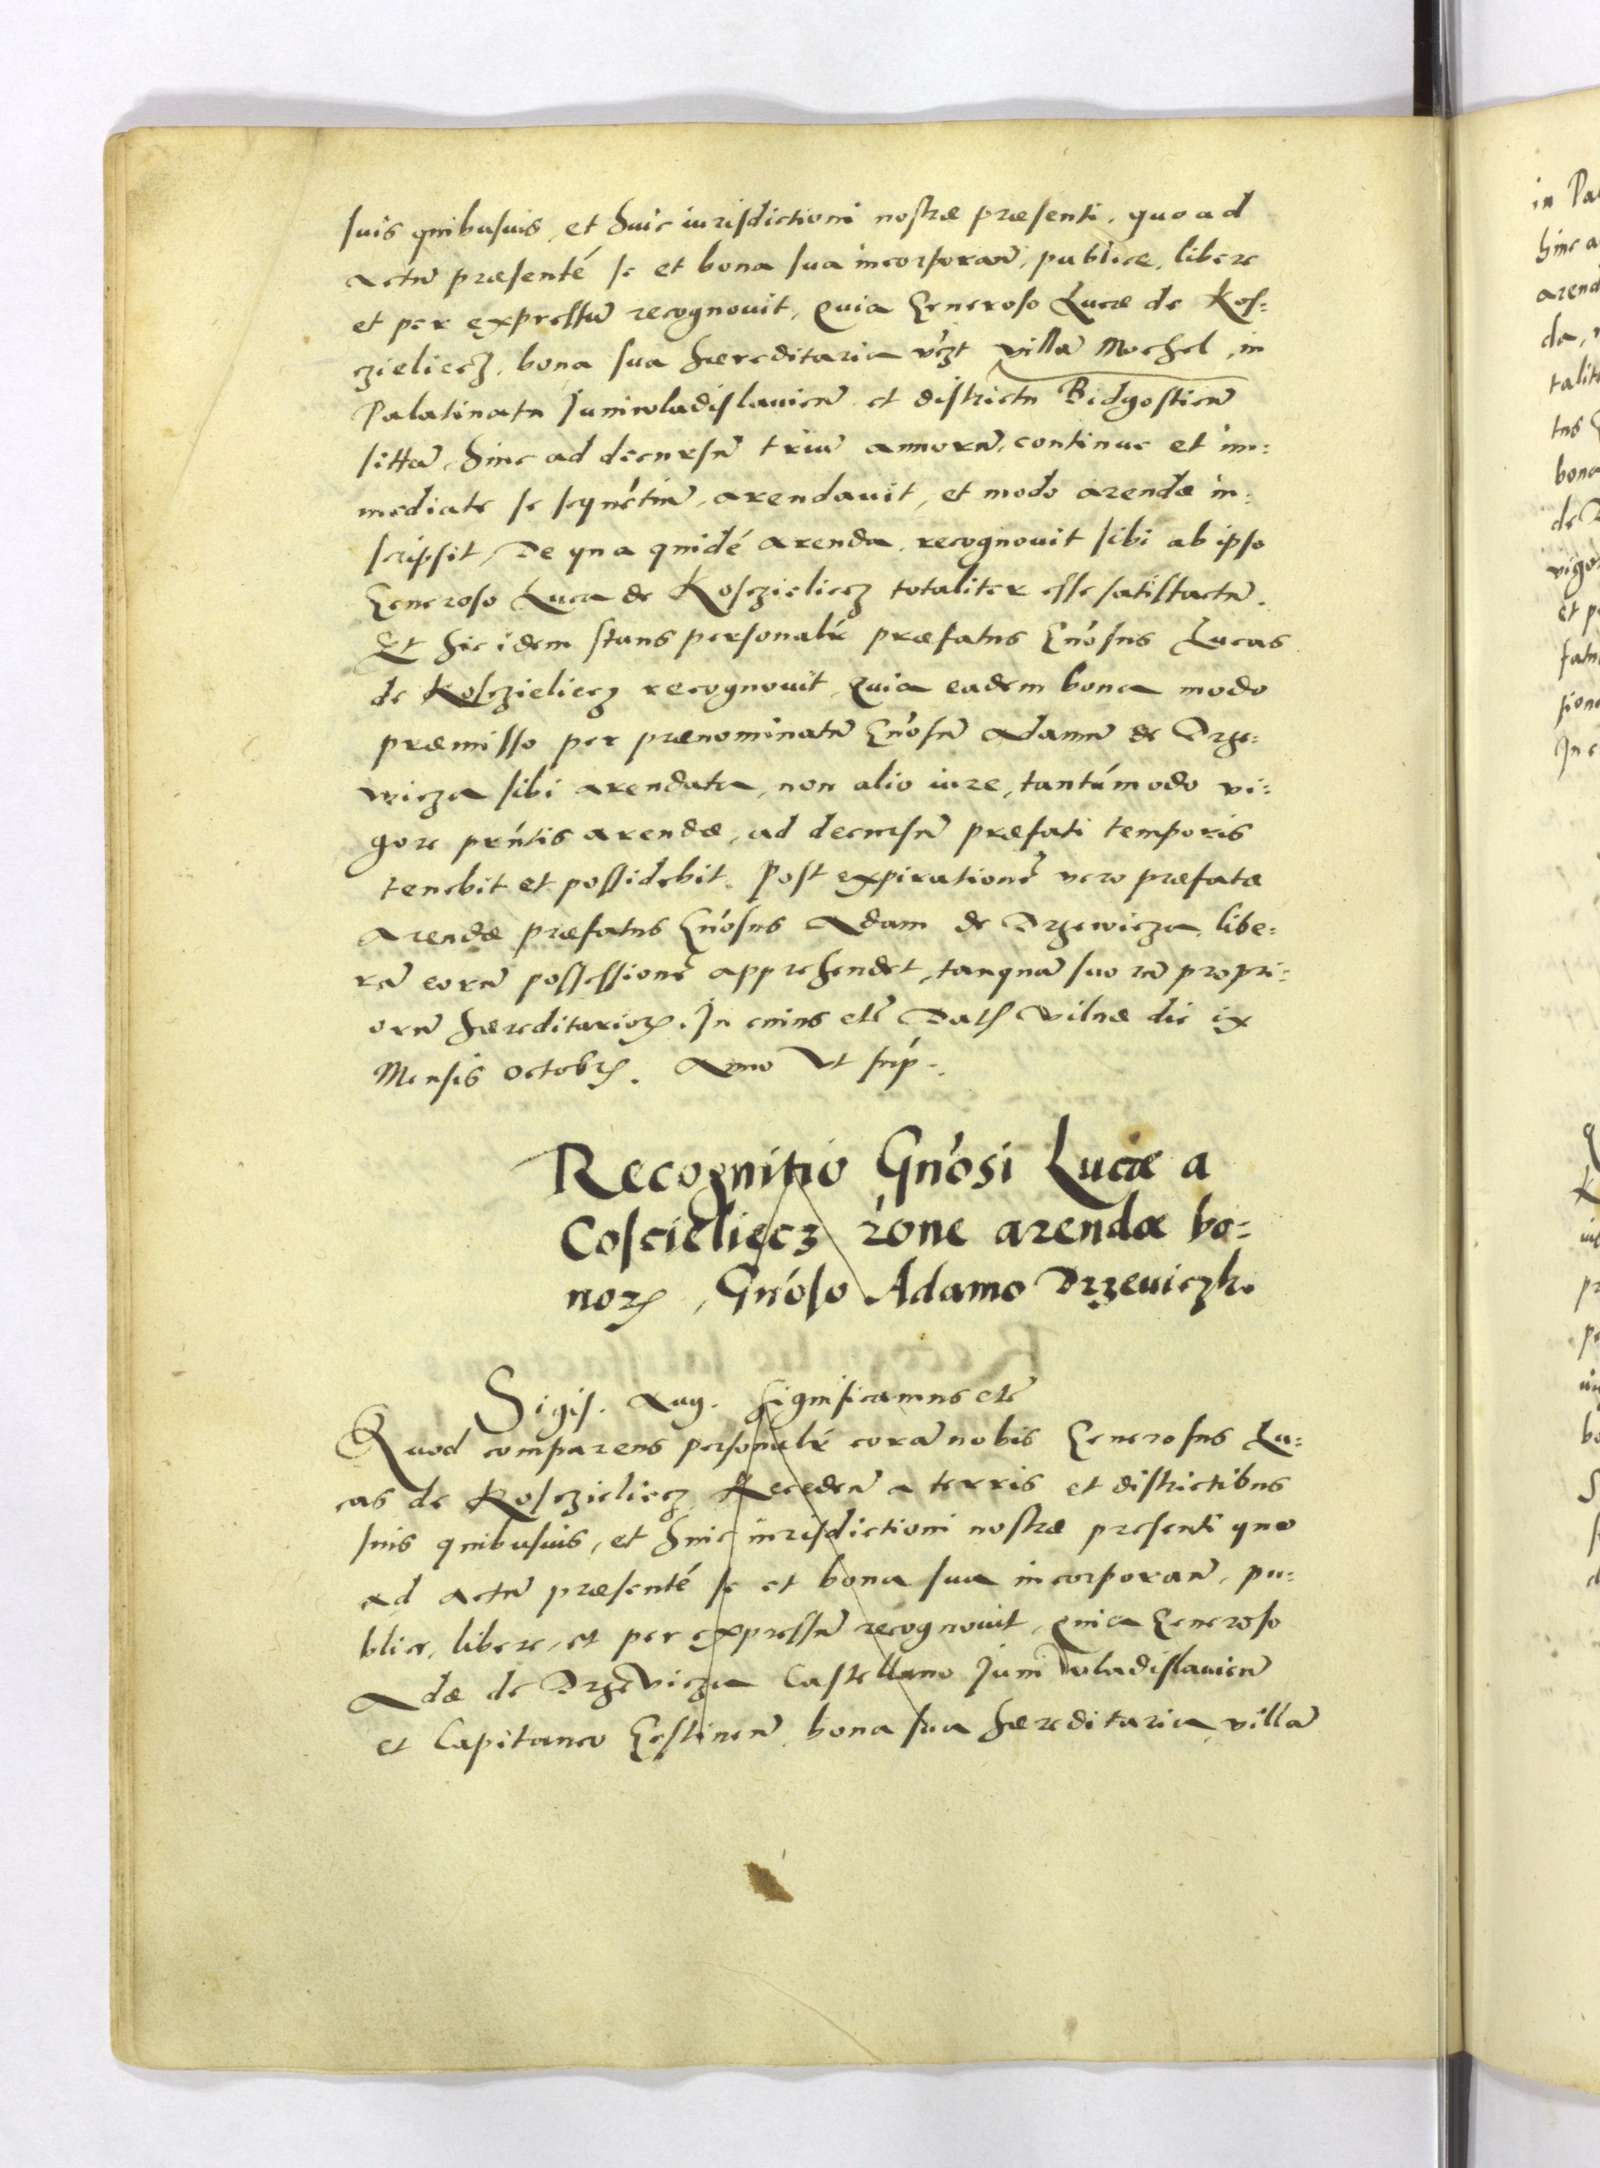 suis quibusuis, et huic iurisdictioni nostræ præsenti, quo ad
actũ præsenté se et bona sua incorporan̄, publice, libere
et per expressũ recognouit, Quia Generoso Lucæ de Kos=
czieliecz, bona sua hæreditaria vẓt villã Mochel, in
Palatinatu Juniuuladislauien̄ et districtu Bidgostien̄
sittã, hinc ad decursũ triũ annorũ, continue et im=
mediate se sequẽtiũ, arendauit, et modo arendæ in=
scripsit, De qua quidé arenda, recognouit sibi ab ipso
Generoso Luca de Kosczieliecz totaliter esse satisfactũ.
Et hic idem stans personalr̃ præfatus Gn̄osus Lucas
de Kosczieliecz recognouit, Quia eadem bona modo
præmisso per prænominatũ Gn̄osũ Adamũ de Drze=
wicza sibi arendata, non alio iure, tantúmodo vi=
gore pn̄tis arendæ, ad decursũ præfati temporis
tenebit et possidebit. Post expirationẽ vero præfatæ
Arendæ præfatus Gn̄osus Adam de Drzewicza, libe=
rã eorũ possessionẽ apprehendet, tanquã suorũ propri=
orũ hæreditarioꝝ. In cuius etc̃ Datꝭ Vilnæ die ix
Mensis Octobrꝭ. Anno Vt sup̄.
Recognitio Gn̄osi Lucæ a
Coscieliecz r̃one arendæ bo=
noꝝ, Gn̄oso Adamo Drzeuiczk.
Sigis. Aug. Significamus etc̃
Quod comparens personalr̃ corã nobis Generosus Lu=
cas de Kosczieliecz, Receden̄ a terris et districtibus
suis quibusuis, et huic iurisdictioni nostræ presenti quo
ad actũ præsenté se et bona sua incorporan̄, pu=
blice, libere, et per expressũ recognouit, quia Generoso
Adæ de DrzeVicza Castellano JuniVuladislauien̄
et Capitaneo Gostinen̄, bona sua hæreditaria, villã